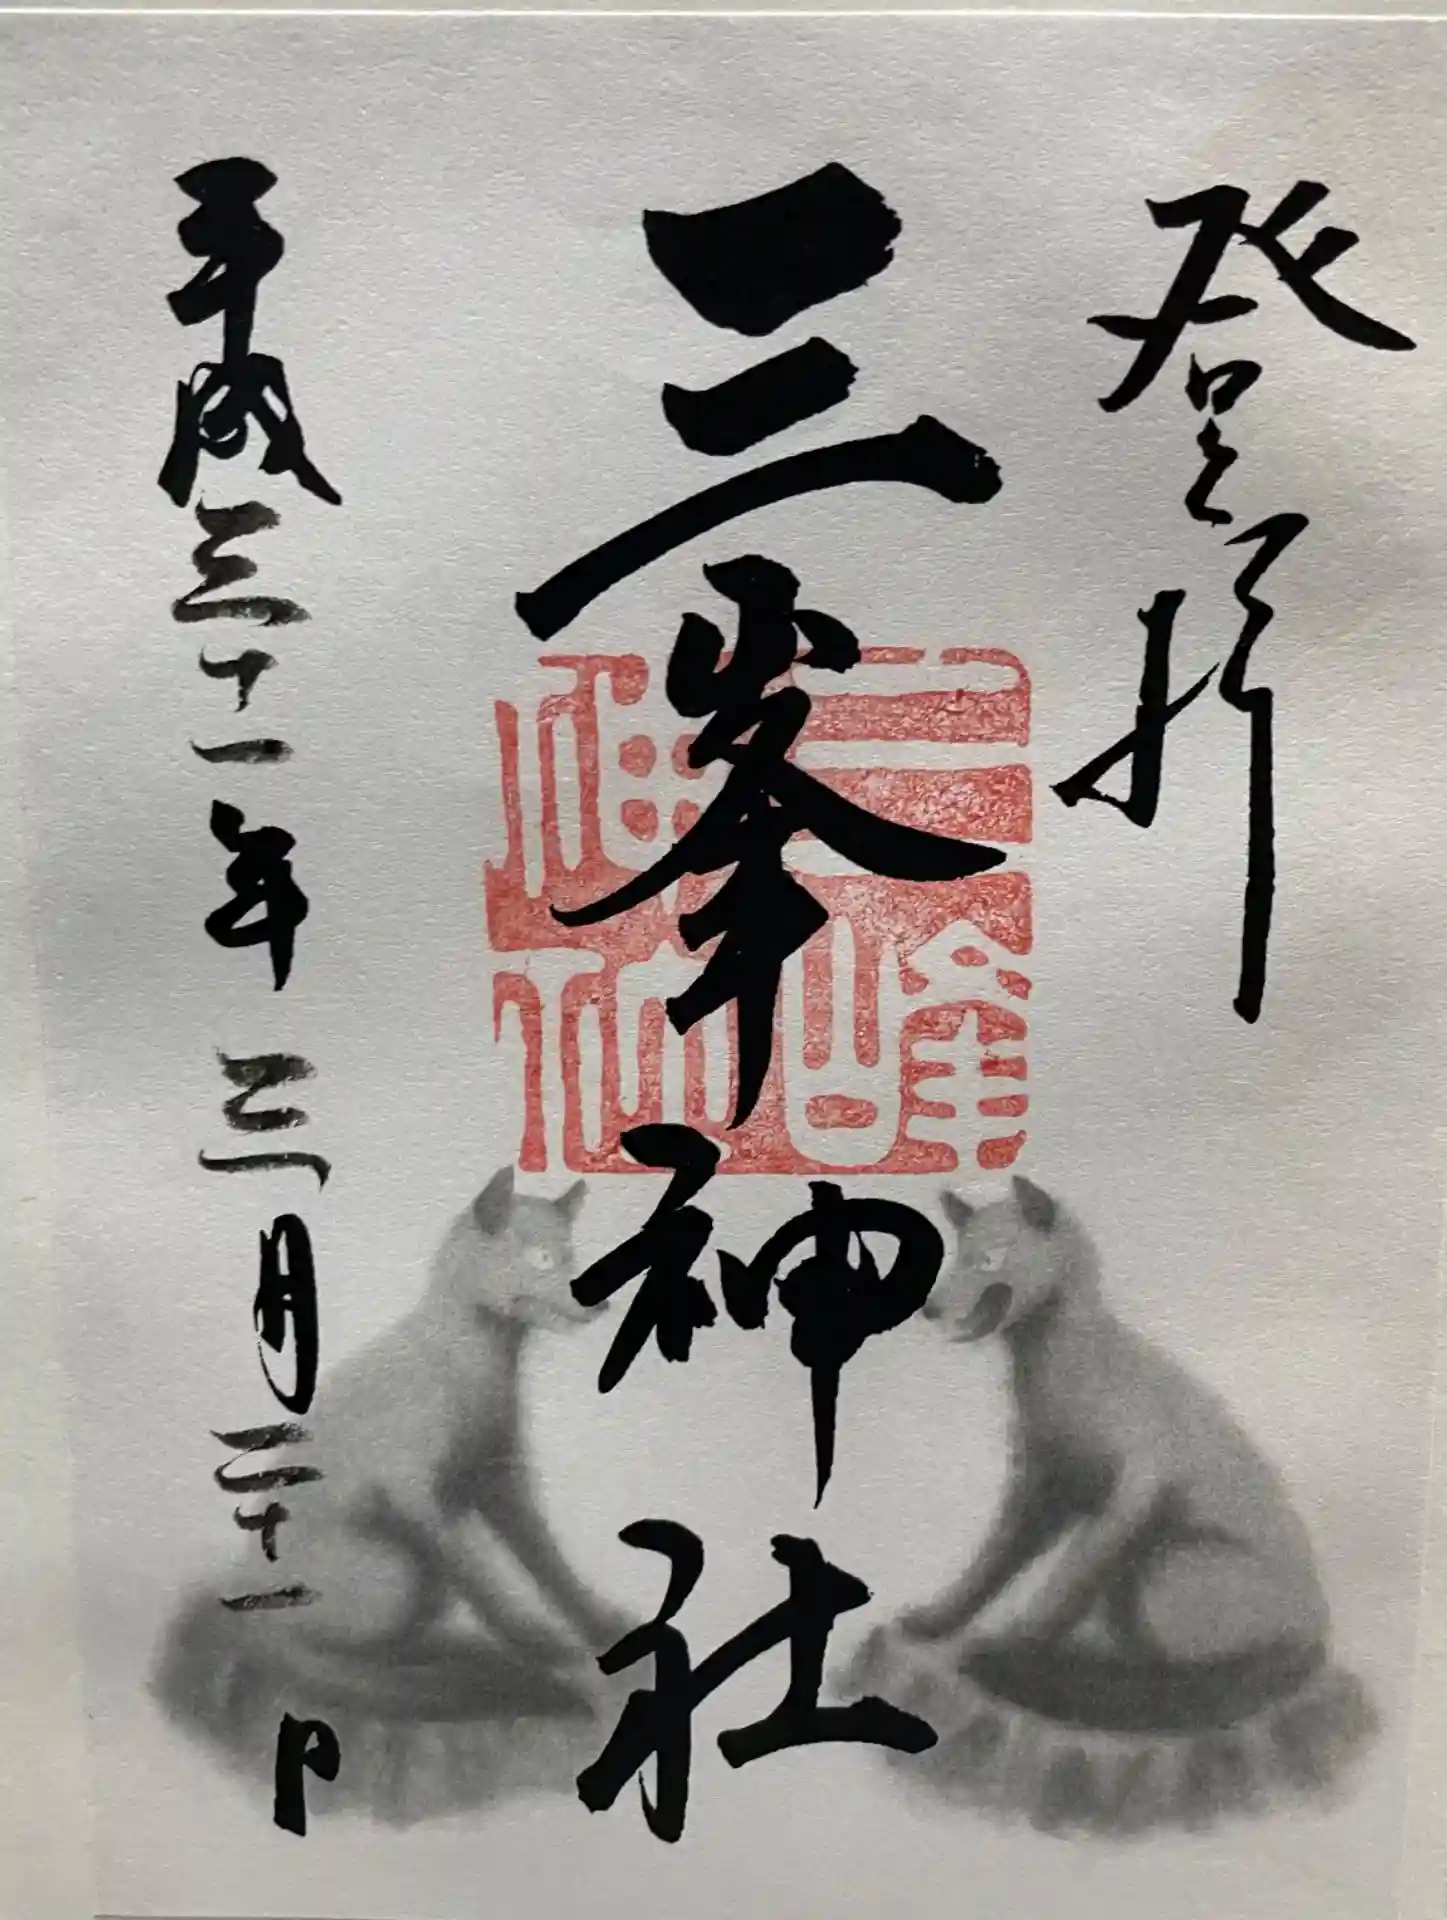 登拝
三峯神社
三峰神社
平成三十一年三月二十一日